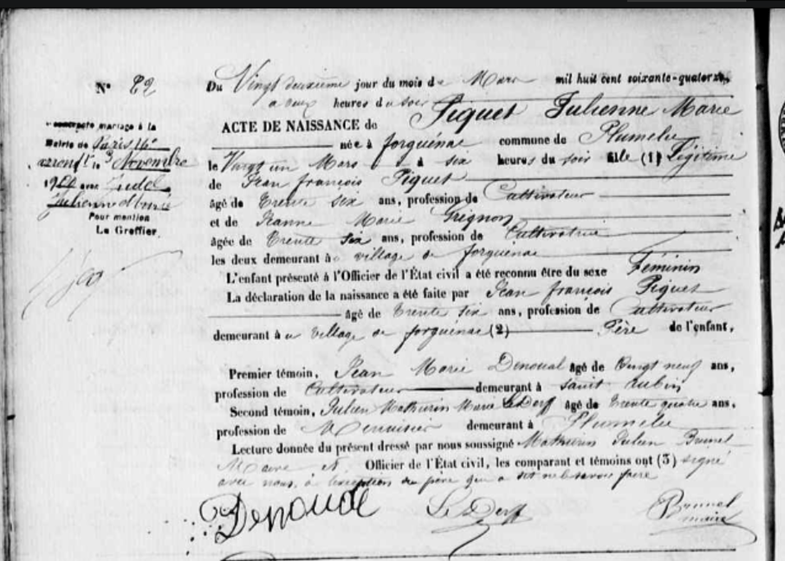 N° 22
Du Vingt deuxième jour du mois de Mars mil huit cent soixante-quatorze,
a deux heures du soir
ACTE DE NAISSANCE de Piquet Julienne Marie
née à forguénae commune de Plumelec
le Vingt un Mars à six heures du soir fille (1) Légitime
de Jean françois Piquet
âgé de trente six ans, profession de Cultivateur
et de Jeanne Marie Grignon
âgée de trente six ans, profession de Cultivatrice
les deux demeurant à village de forguénae
L'enfant présenté à l'Officier de l'État civil a été reconnu être du sexe féminin
La déclaration de la naissance a été faite par Jean françois Piquet
âgé de trente six ans, profession de Cultivateur
demeurant à village de forguénae (2) Père de l'enfant,
Premier témoin, Jean Marie Denoual âgé de vingt neuf ans,
profession de Cultivateur demeurant à saint Aubin
Second témoin, Julien Mathurin Marie Le Derf âgé de trente quatre ans,
profession de Menuisier demeurant à Plumelec
Lecture donnée du présent dressé par nous soussigné Mathurin Julien Brunel
Maire Officier de l'État civil, les comparant et témoins ont (3) signé
avec nous, à l'exception du père qui a dit ne le savoir faire
Denoual Le Derf Brunel
maire
contracté mariage à la
Mairie de Paris 14e
arrondt le 3 Novembre
avec
Pour mention
Le Greffier.